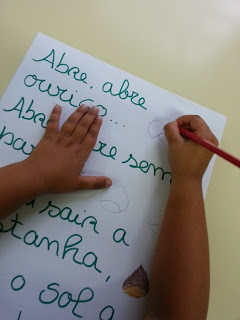 Abre, abre
ouriço...
Abre sem
sair a
stanha,
o sol a